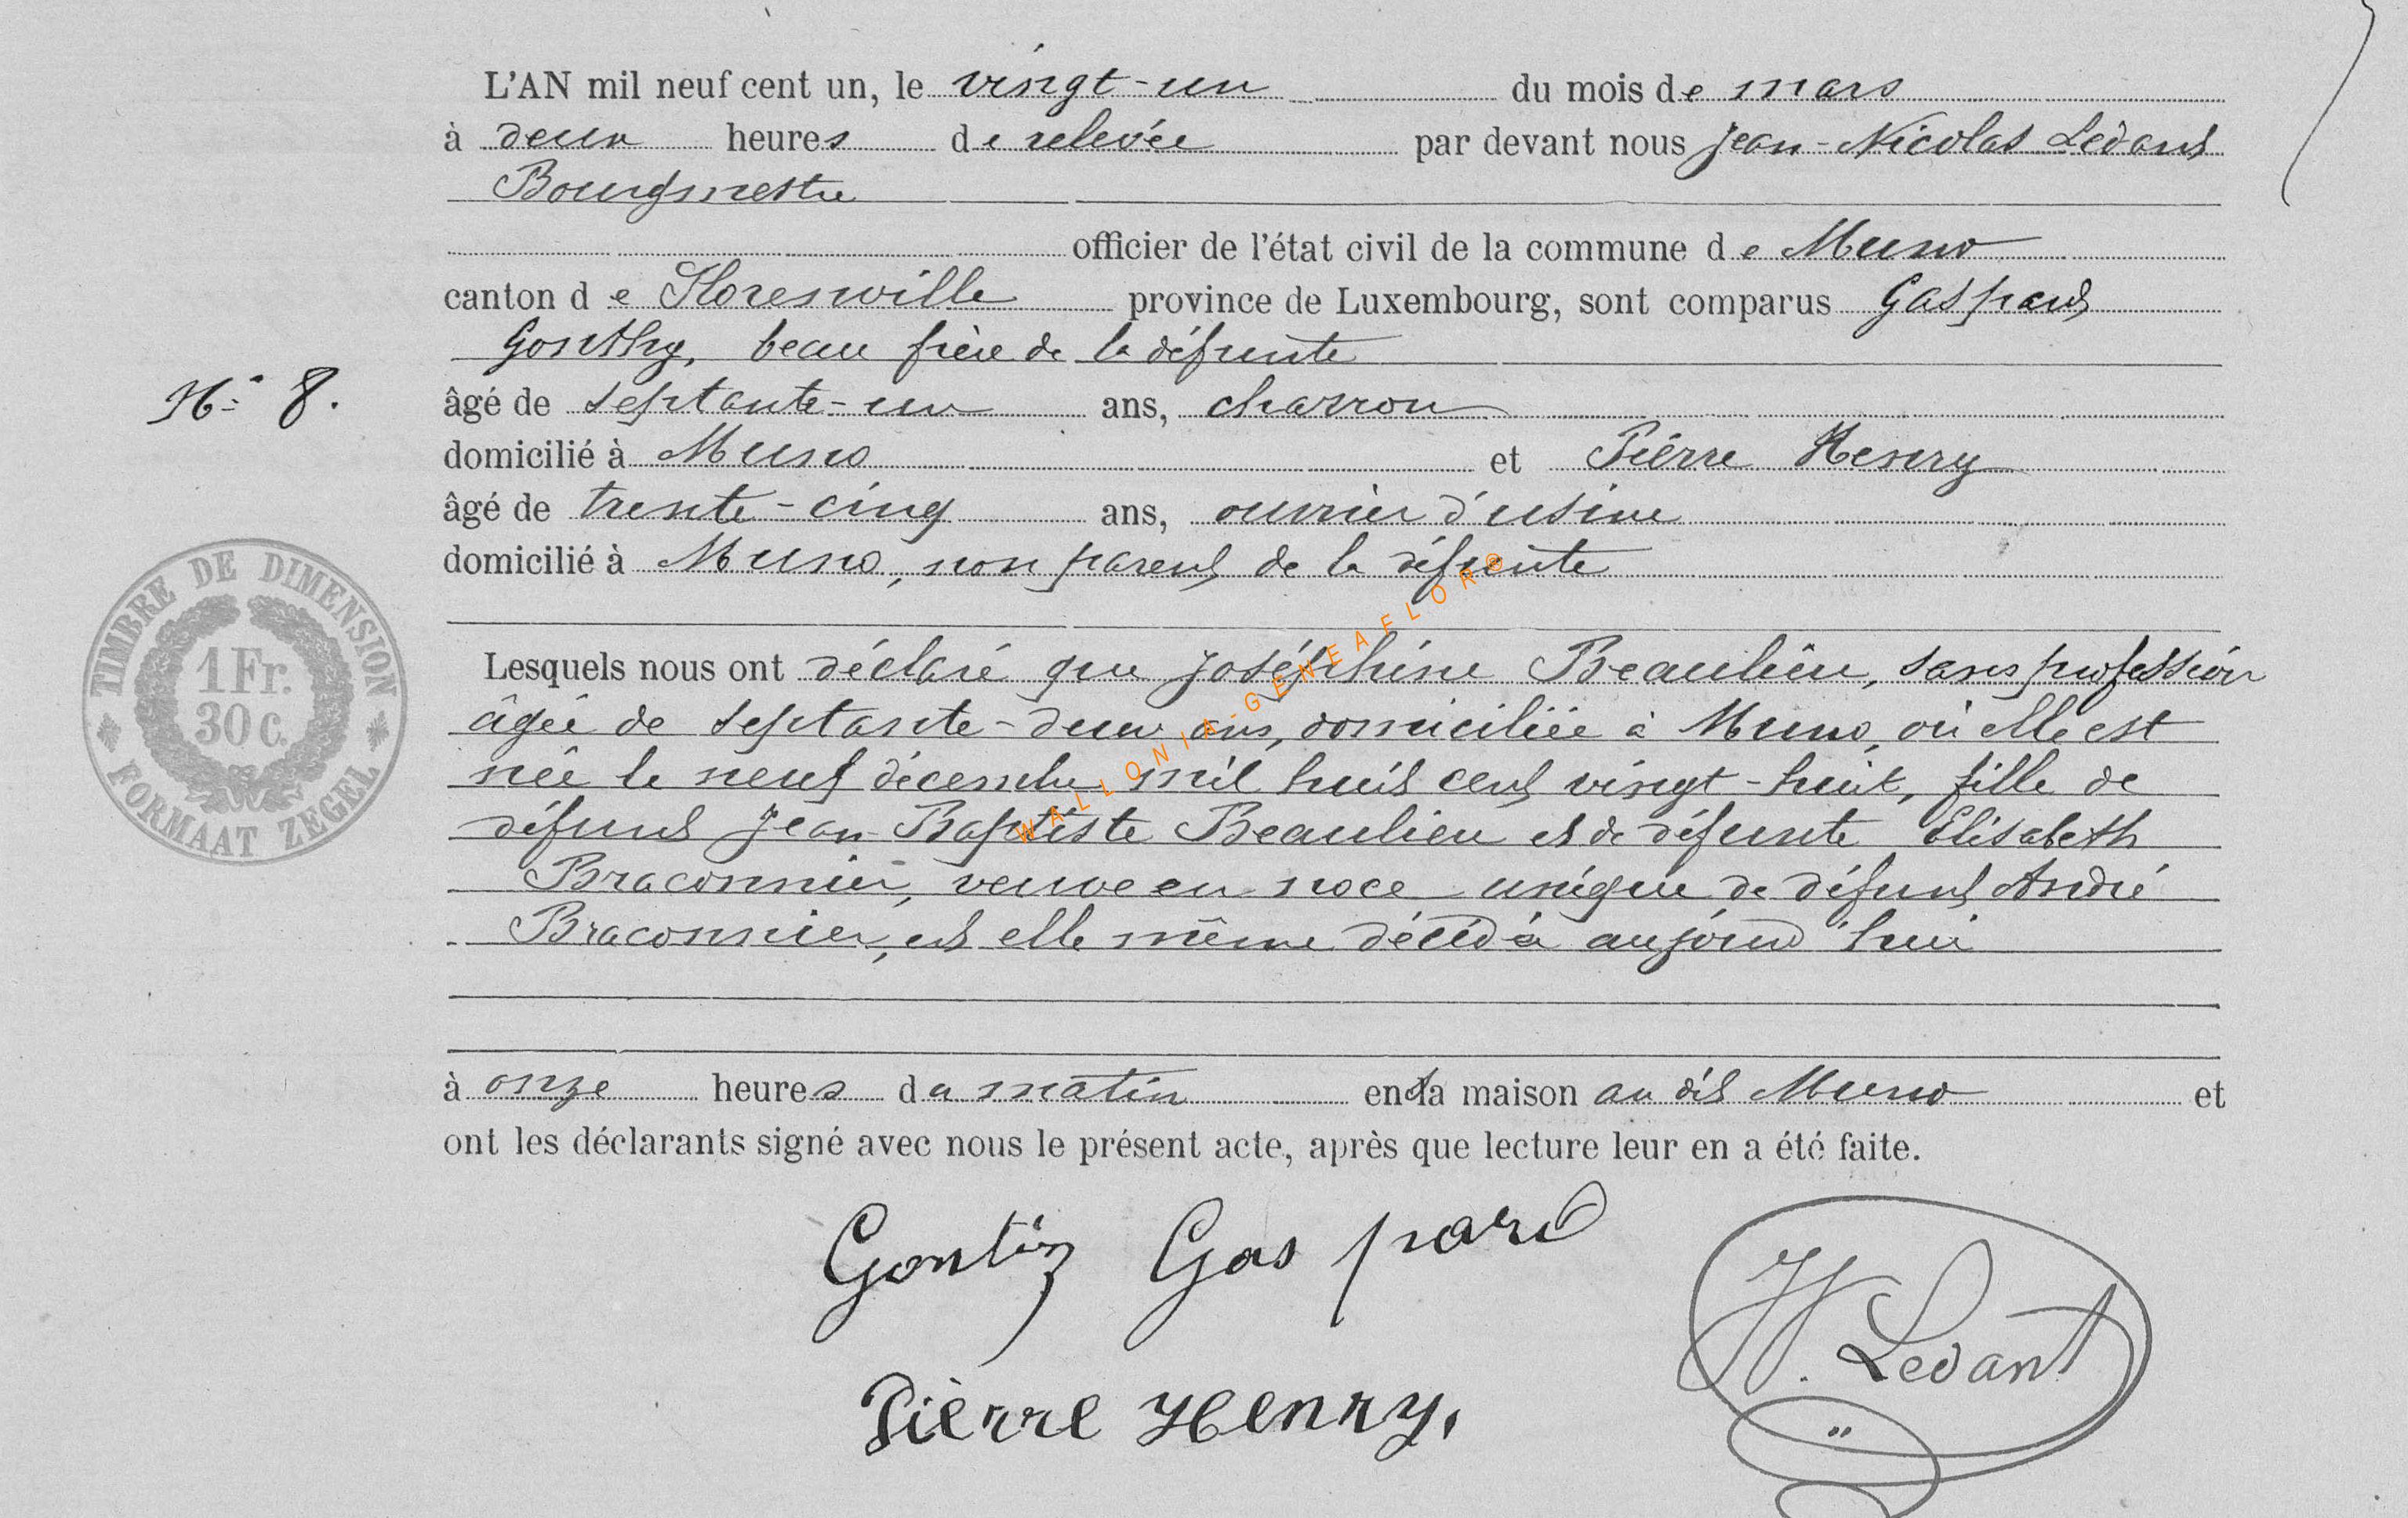 L'AN mil neuf cent un, le vingt-un du mois de mars
à deux heures de relevée par devant nous Jean-Nicolas Ledant
Bourgmestre
officier de l'état civil de la commune de Muno
canton de Florenville province de Luxembourg, sont comparus Gaspard
Gonthy, beau frère de la défunte
N° 8.
âgé de septante-un ans, charron
domicilié à Muno et Pierre Henry
âgé de trente-cinq ans, ouvrier d'usine
domicilié à Muno, non parent de la défunte
TIMBRE DE DIMENSION
1 Fr.
30 c.
FORMAAT ZEGEL
Lesquels nous ont déclaré que Joséphine Beaulieu, sans profession
âgée de septante-deux ans, domiciliée à Muno, où elle est
née le neuf décembre mil huit cent vingt-huit, fille de
défunt Jean-Baptiste Beaulieu et de défunte Elisabeth
Braconnier, veuve en noce unique de défunt André
Braconnier, est elle même décédée aujourd'hui
à onze heures du matin en sa maison au dit Muno et
ont les déclarants signé avec nous le présent acte, après que lecture leur en a été faite.
Gaspard
Pierre Henry.
N. Ledant
WALLONIA-GENEAFLOR®